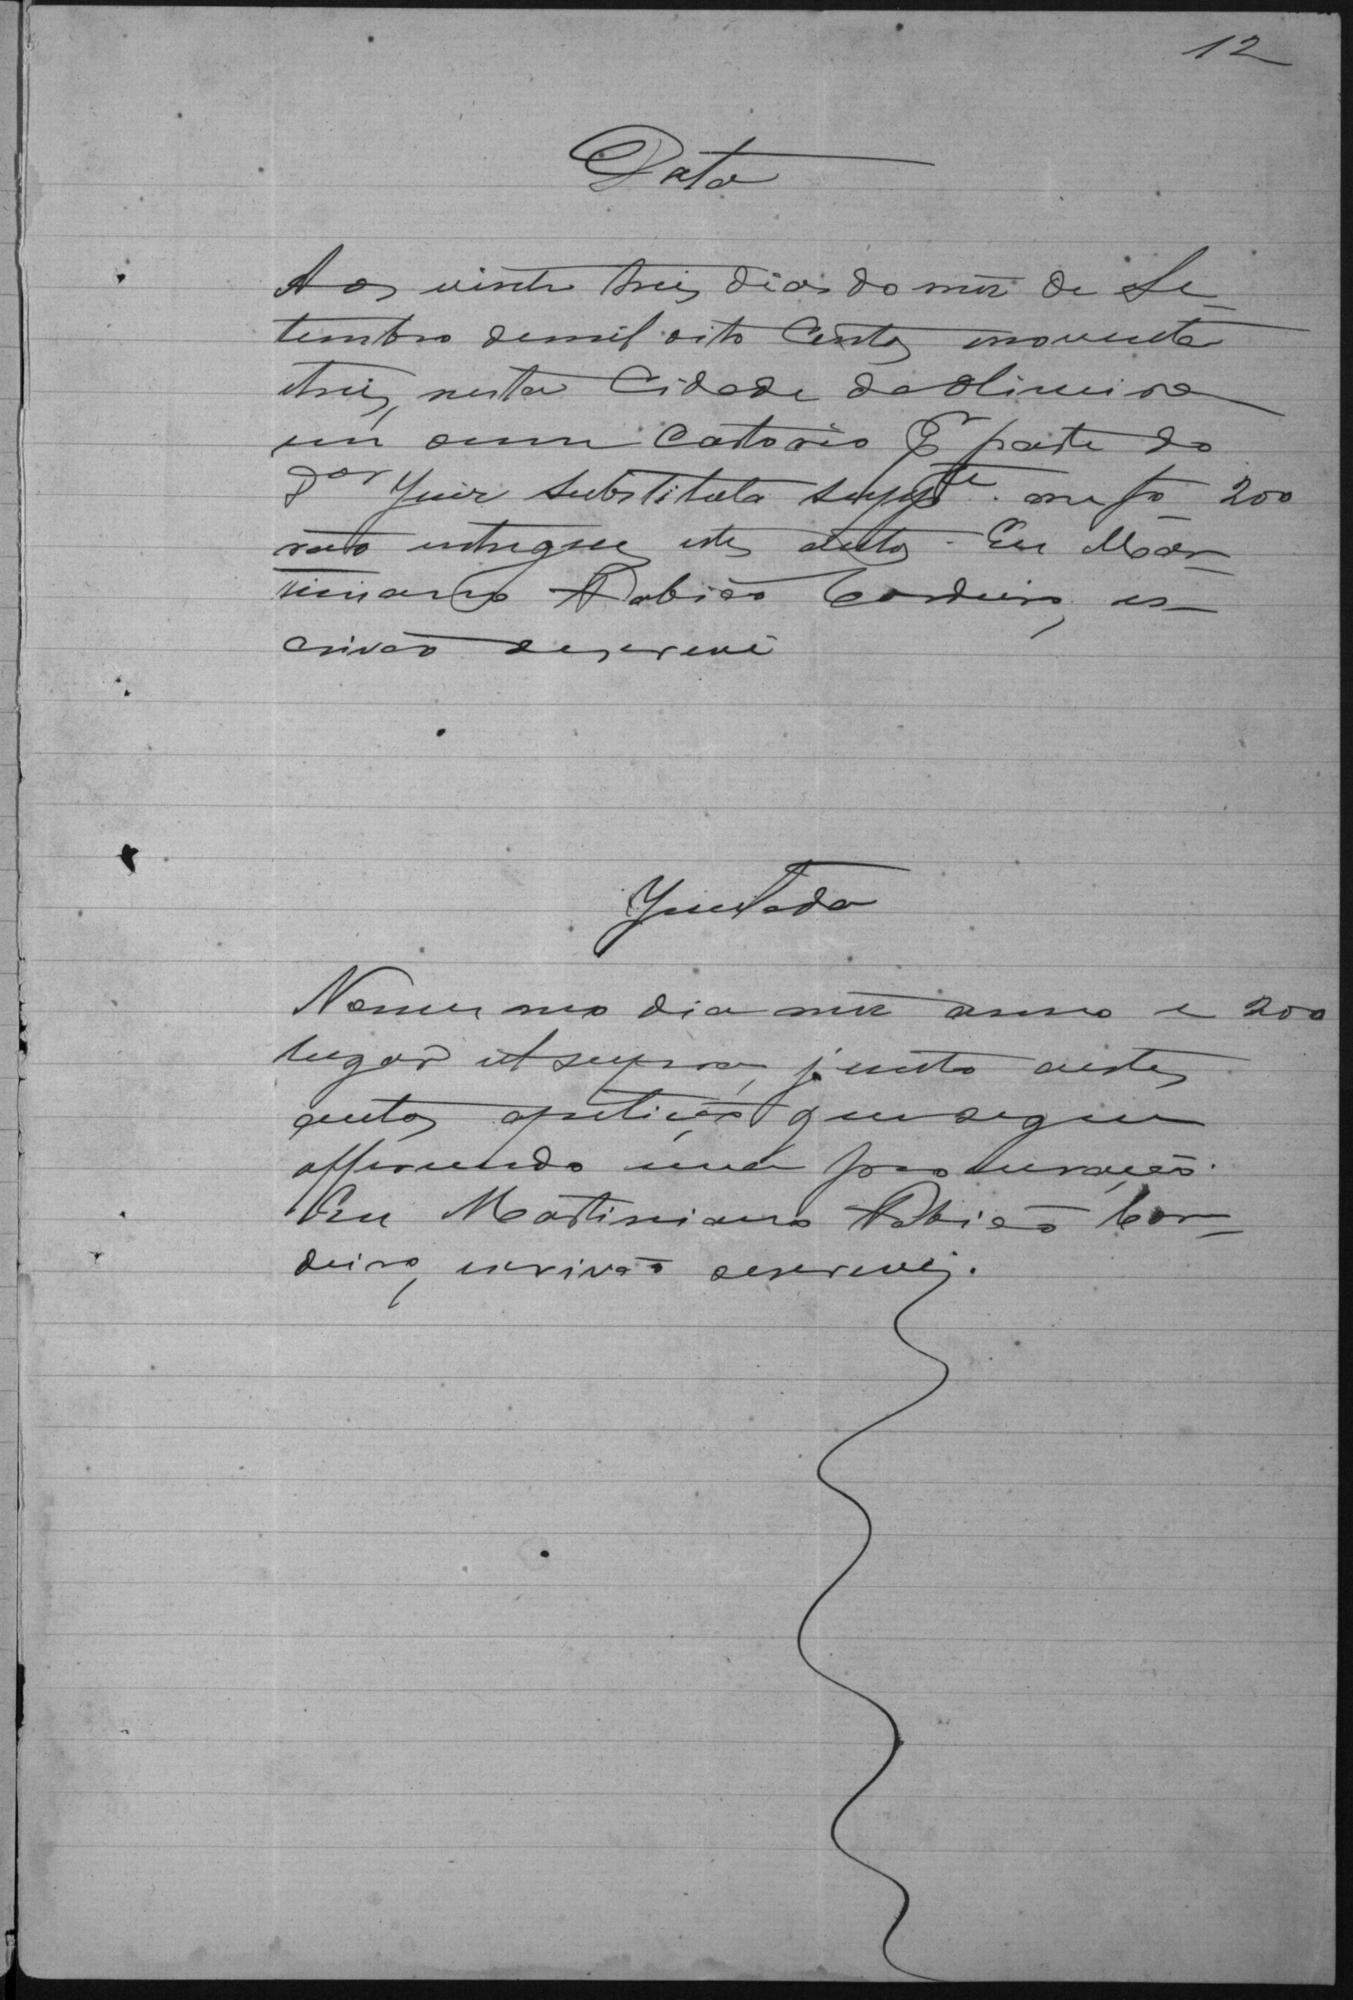 12
Data
Aos vinte treis dias do mez de Se-
tembro de mil oito centos noventa
e treis, nesta Cidade da Oliveira
em meu Cartorio pr parte do
Dor Juiz Substituto suppte. me fo 200
rão entregues estes autos. Eu Mar-
tiniano Rabiço Cordeiro, es-
crivão descrevi
Juntada
No mesmo dia mez anno e 200
lugar ut supra, junto a estes
autos a petição que segue
offerecendo uma procuração.
Eu Martiniano Rabiço Cor-
deiro, escrivão escrevi.